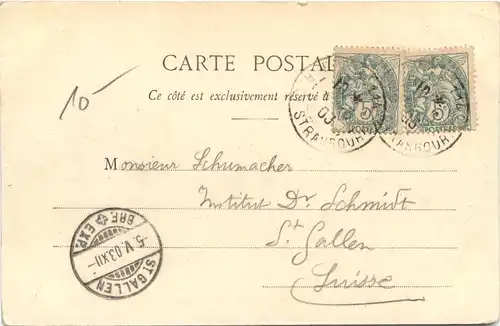 CARTE POSTAL
Ce côté est exclusivement réservé à
10-
5
5
03
STRASBOUR
Monsieur Schumacher
Institut Dr Schmidt
St Gallen
Suisse
BRF EXP.
-5.V.03.XII-
ST GALLEN